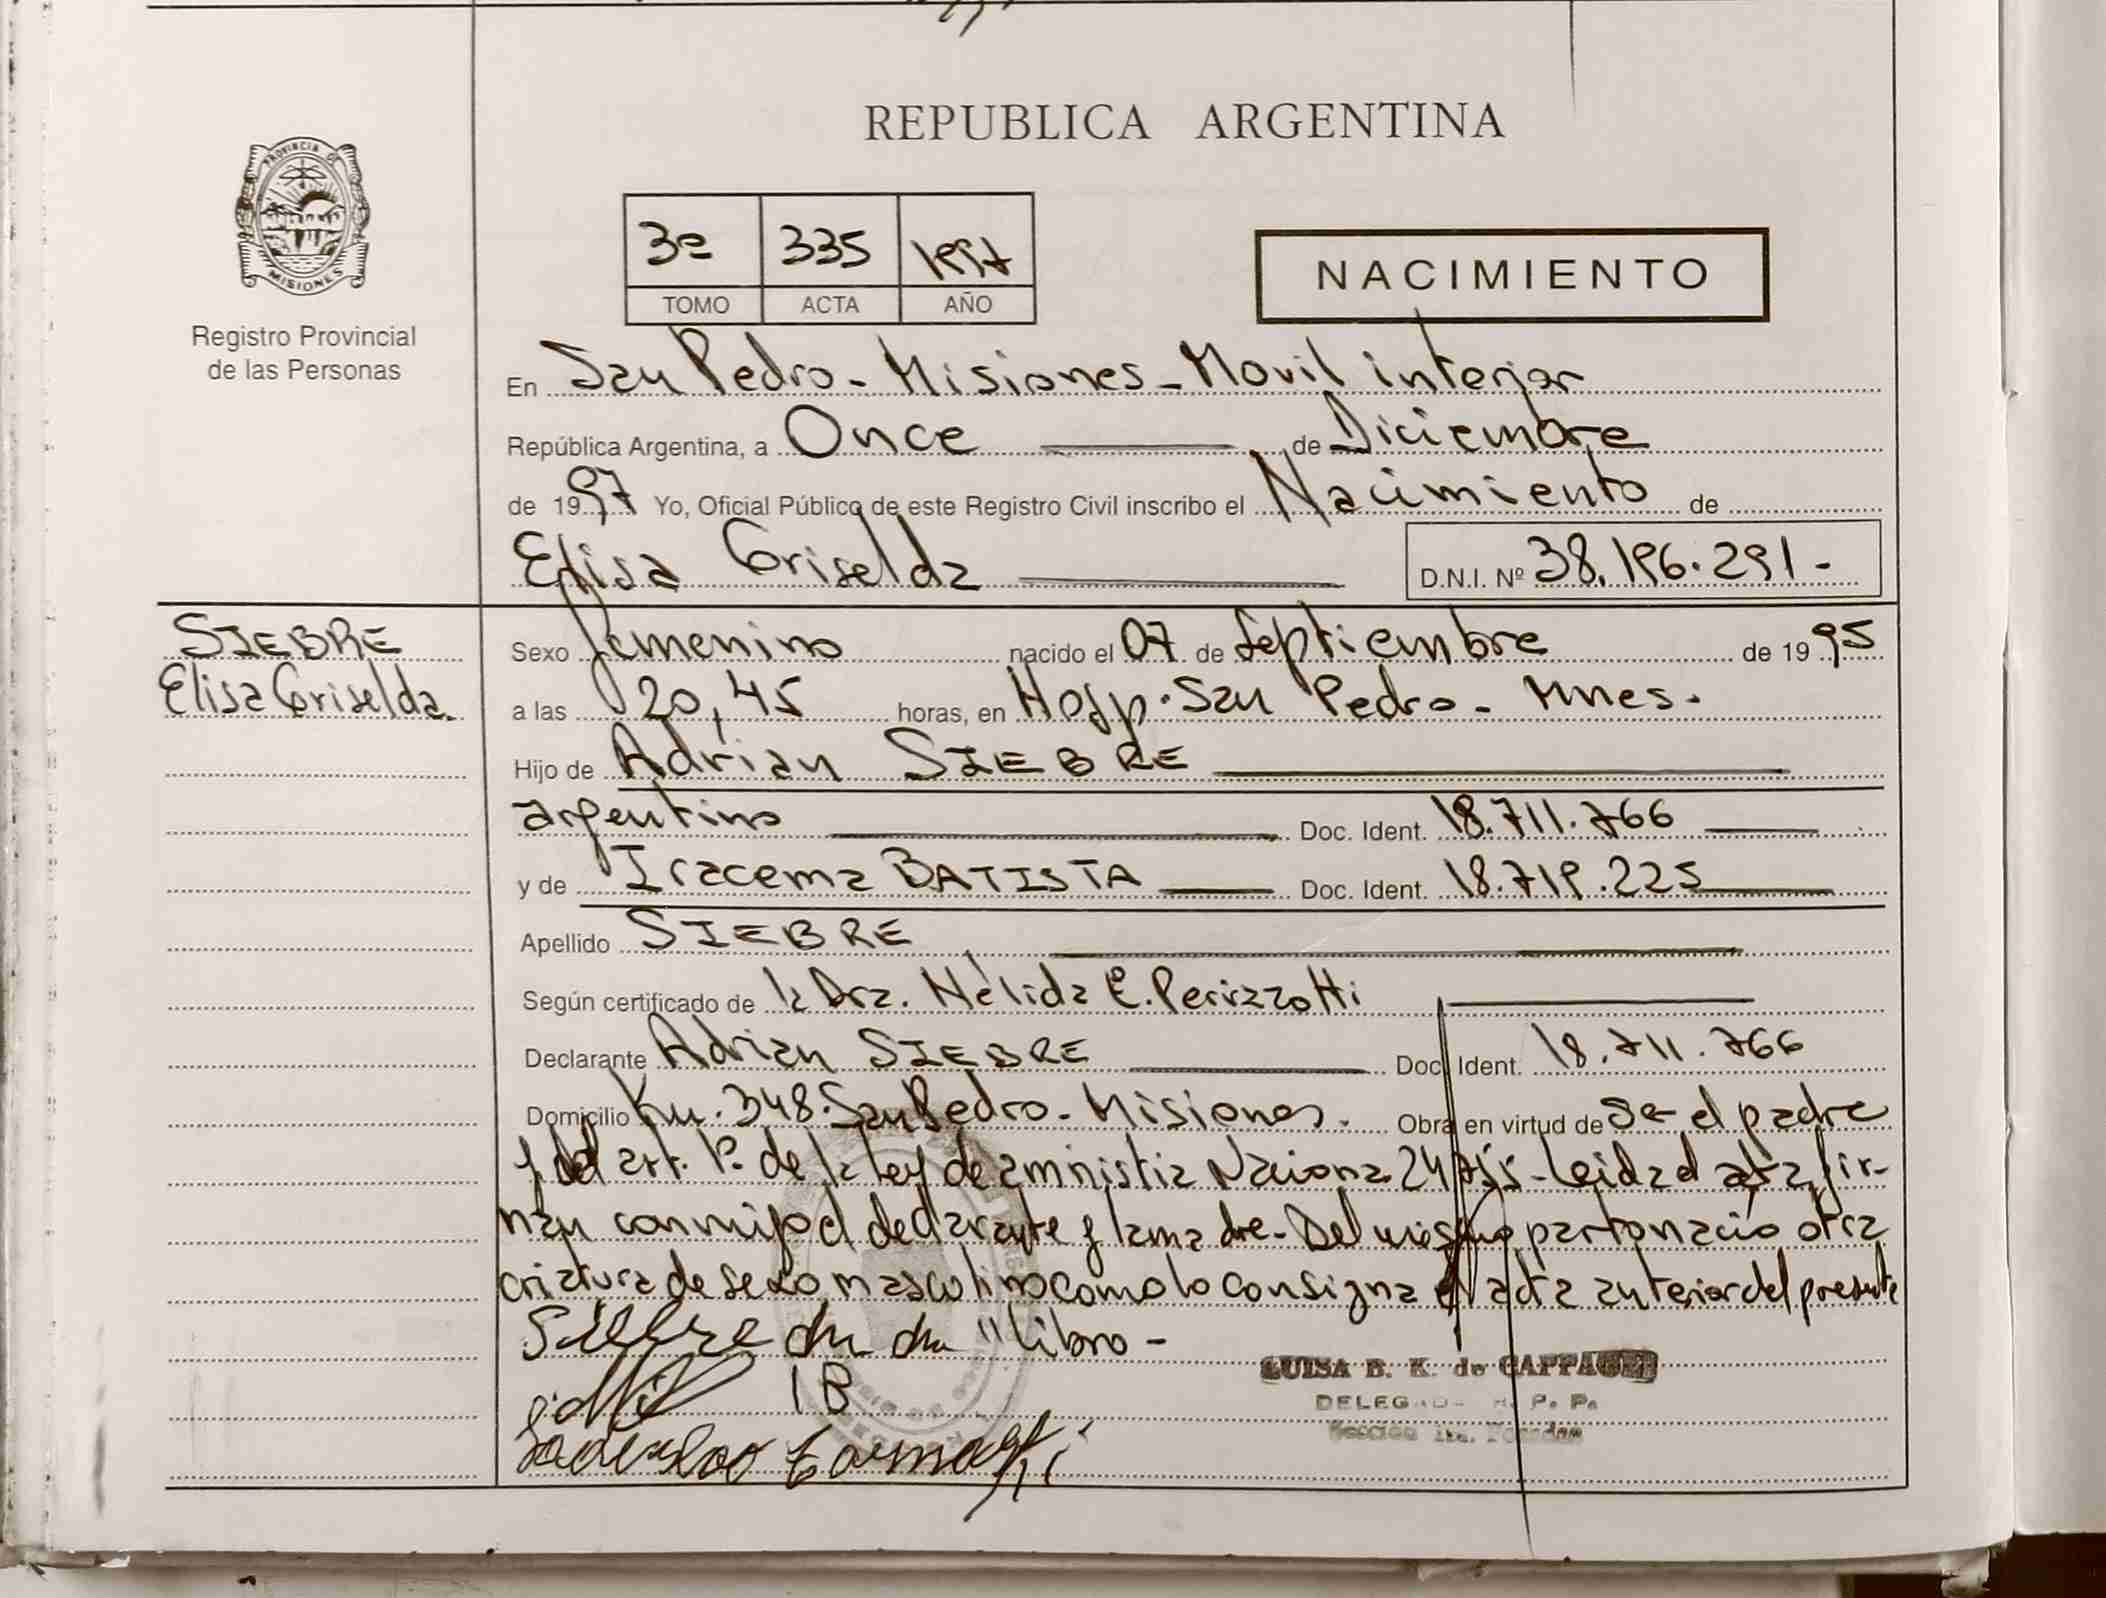 REPUBLICA ARGENTINA
PROVINCIA DE
MISIONES
Registro Provincial
de las Personas
3º 335 1997
TOMO ACTA AÑO
NACIMIENTO
En San Pedro - Misiones - Movil interior
República Argentina, a Once de Diciembre
de 1997 Yo, Oficial Público de este Registro Civil inscribo el Nacimiento de
Elisa Griselda D.N.I. Nº 38.196.291.-
SIEBRE
Elisa Griselda.
Sexo femenino nacido el 07 de Septiembre de 1995
a las 20,45 horas, en Hosp. San Pedro - Mnes.
Hijo de Adrian SIEBRE
argentino Doc. Ident. 18.711.766
y de Iracema BATISTA Doc. Ident. 18.719.225
Apellido SIEBRE
Según certificado de la Dra. Nélida E. Perizzotti
Declarante Adrian SIEBRE Doc. Ident. 18.711.766
Domicilio Km. 348. San Pedro - Misiones. Obra en virtud de Se- el padre
y del art. 1º de la ley de amnistia Naciona 24755 - Leida el acta, fir-
man conmigo el declarante y la madre - Del mismo parto nacio otra
criatura de sexo masculino como lo consigna el acta anterior del presente
Siebre " libro -
I B
LUISA B. K. de
DELEGADA R. P. P.
Seccion 1ra. Posadas